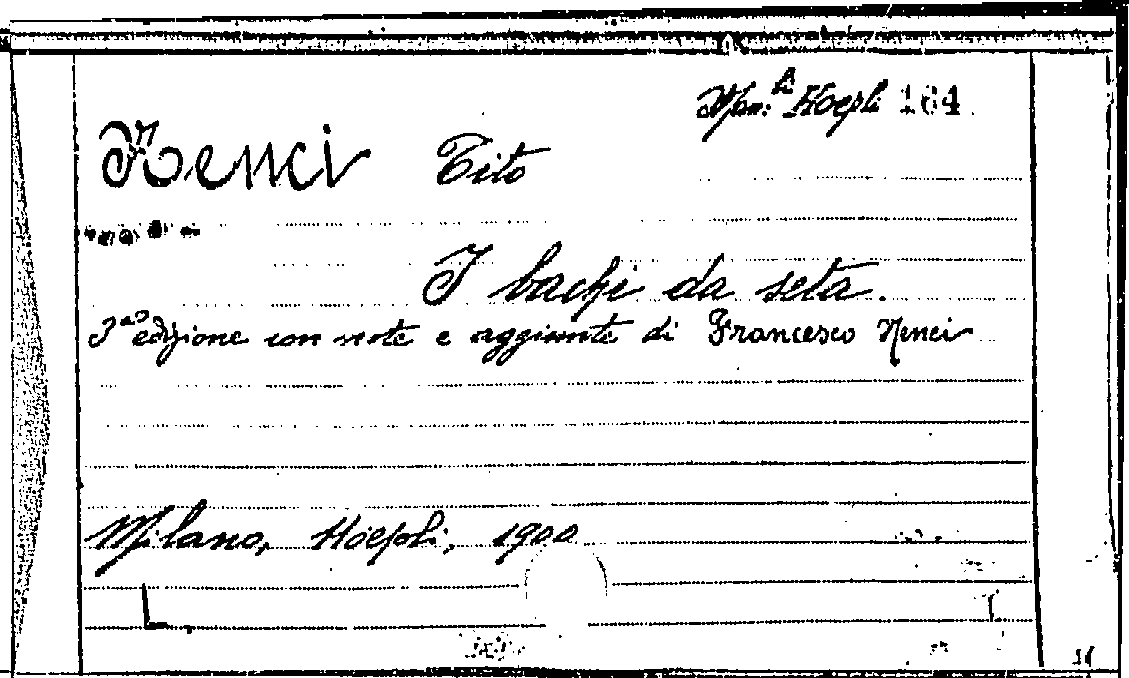 Man. li Hoepli 164
Nenci Tito
I bachi da seta.
3ª edizione con note e aggiunte di Francesco Nenci
Milano, Hoepli, 1900